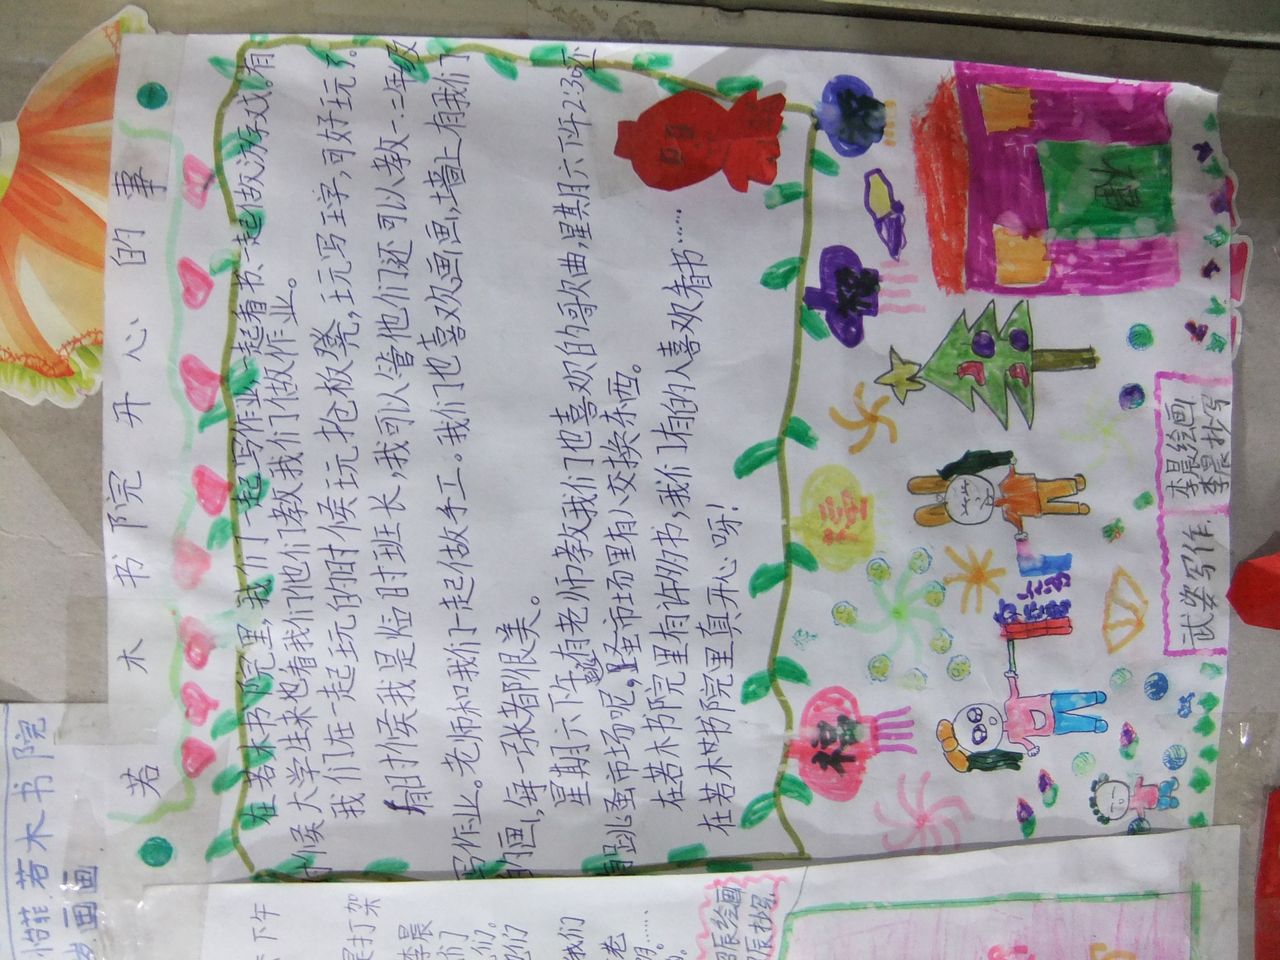 若木书院开心的事
在若木书院里,我们一起写作业一起看书一起做游戏。有
时候大学生来也看我们他们教我们做作业。
我们在一起玩的时候玩抢板凳,玩写王字,可好玩了。
时候我是临时班长,我可以管他们还可以教一.二年级
写作业。老师和我们一起做手工。我们也喜欢画画,墙上有我们
的画,每一张都很美。
星期六下午有老师教我们也喜欢的歌曲,星期六下午2:30还
有跳蚤市场呢,跳蚤市场里有人交换东西。
在若木书院里有许多书,我们有的人喜欢看书……
在若木书院里真开心呀!
武姿写作.
李晨绘画
李晨抄写
若木书院
画画
下午
打架
李晨
们
们。
他们
我们
老
……
晨绘画
晨抄写.